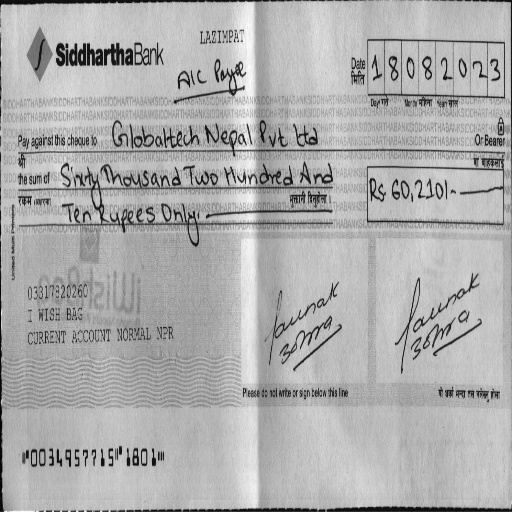 SiddharthaBank
LAZIMPAT
A/C Payee
Date
मिति
18082023
Day गते Month महिना Year साल
Pay against this cheque to Globaltech Nepal Pvt Ltd Or Bearer
श्री वा वाहकलाई
the sum of Sixty Thousand Two Hundred And
रकम (अक्षरमा) Ten Rupees Only. भुक्तानी दिनुहोला ।
Rs 60,210/-
03317820260
I WISH BAG
CURRENT ACCOUNT NORMAL NPR
Please do not write or sign below this line
"0034957715" 1801"'